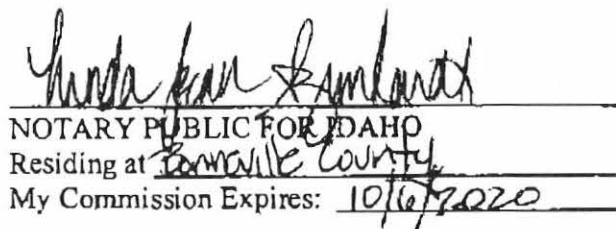 Linda Jean
NOTARY PUBLIC FOR IDAHO
Residing at Bonneville County
My Commission Expires: 10/6/2020